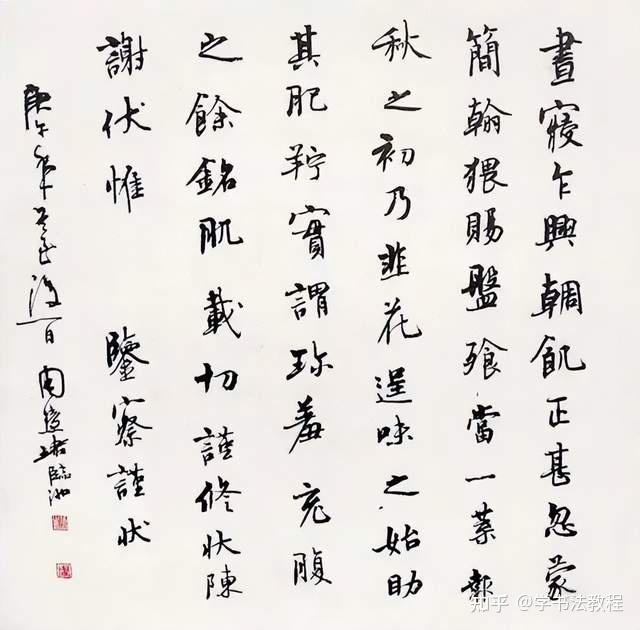 晝寢乍興輖飢正甚忽蒙
簡翰猥賜盤飱當一葉報
秋之初乃韭花逞味之始助
其肥羜實謂珍羞充腹
之餘銘肌載切謹修狀陳
謝伏惟 鑒察謹狀
庚午 後一日 周 臨池
知乎 @学书法教程